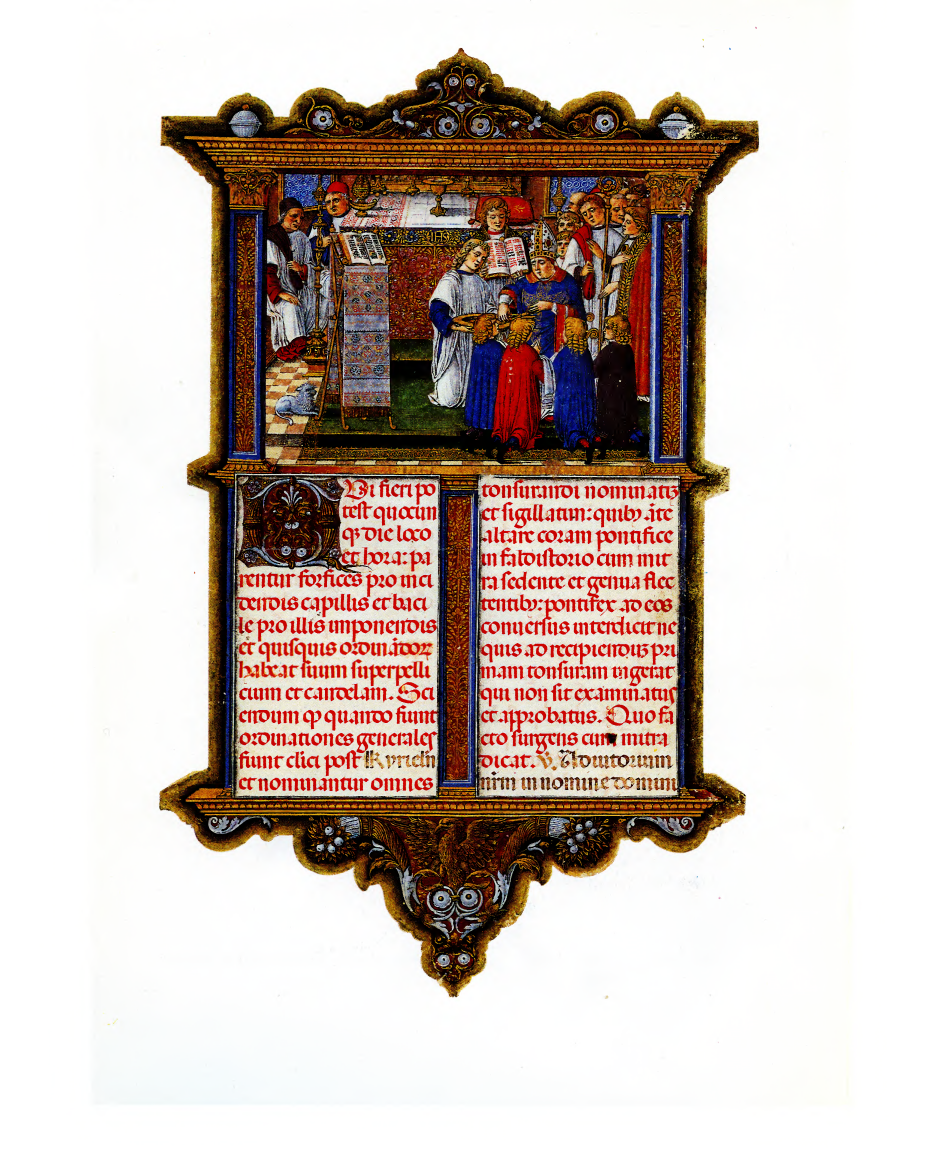 Vi fieri po
test quocun
qꝫ die loco
et hora: pa
rentur forfices pro inci
dendis capillis et baci
le pro illis imponendis
et quisquis ordinādoꝝ
habeat suum superpelli
cium et candelam. Sci
endum ꝙ quando fiunt
ordinationes generales
fiunt clīci post Kyriel̄n
et nominantur omnes
tonsurandi nominatī
et sigillatim: quibꝰ āte
altare coram pontifice
in faldistorio cum mit
ra sedente et genua flec
tentibꝰ: pontifex ad eos
conversus interdicit ne
quis ad recipiendūꝫ pri
mam tonsuram ingerat
qui non sit examinatus
et approbatus. Quo fa
cto surgens cum mitra
dicat. ℣. Adiutorium
nr̄m in nomine domini